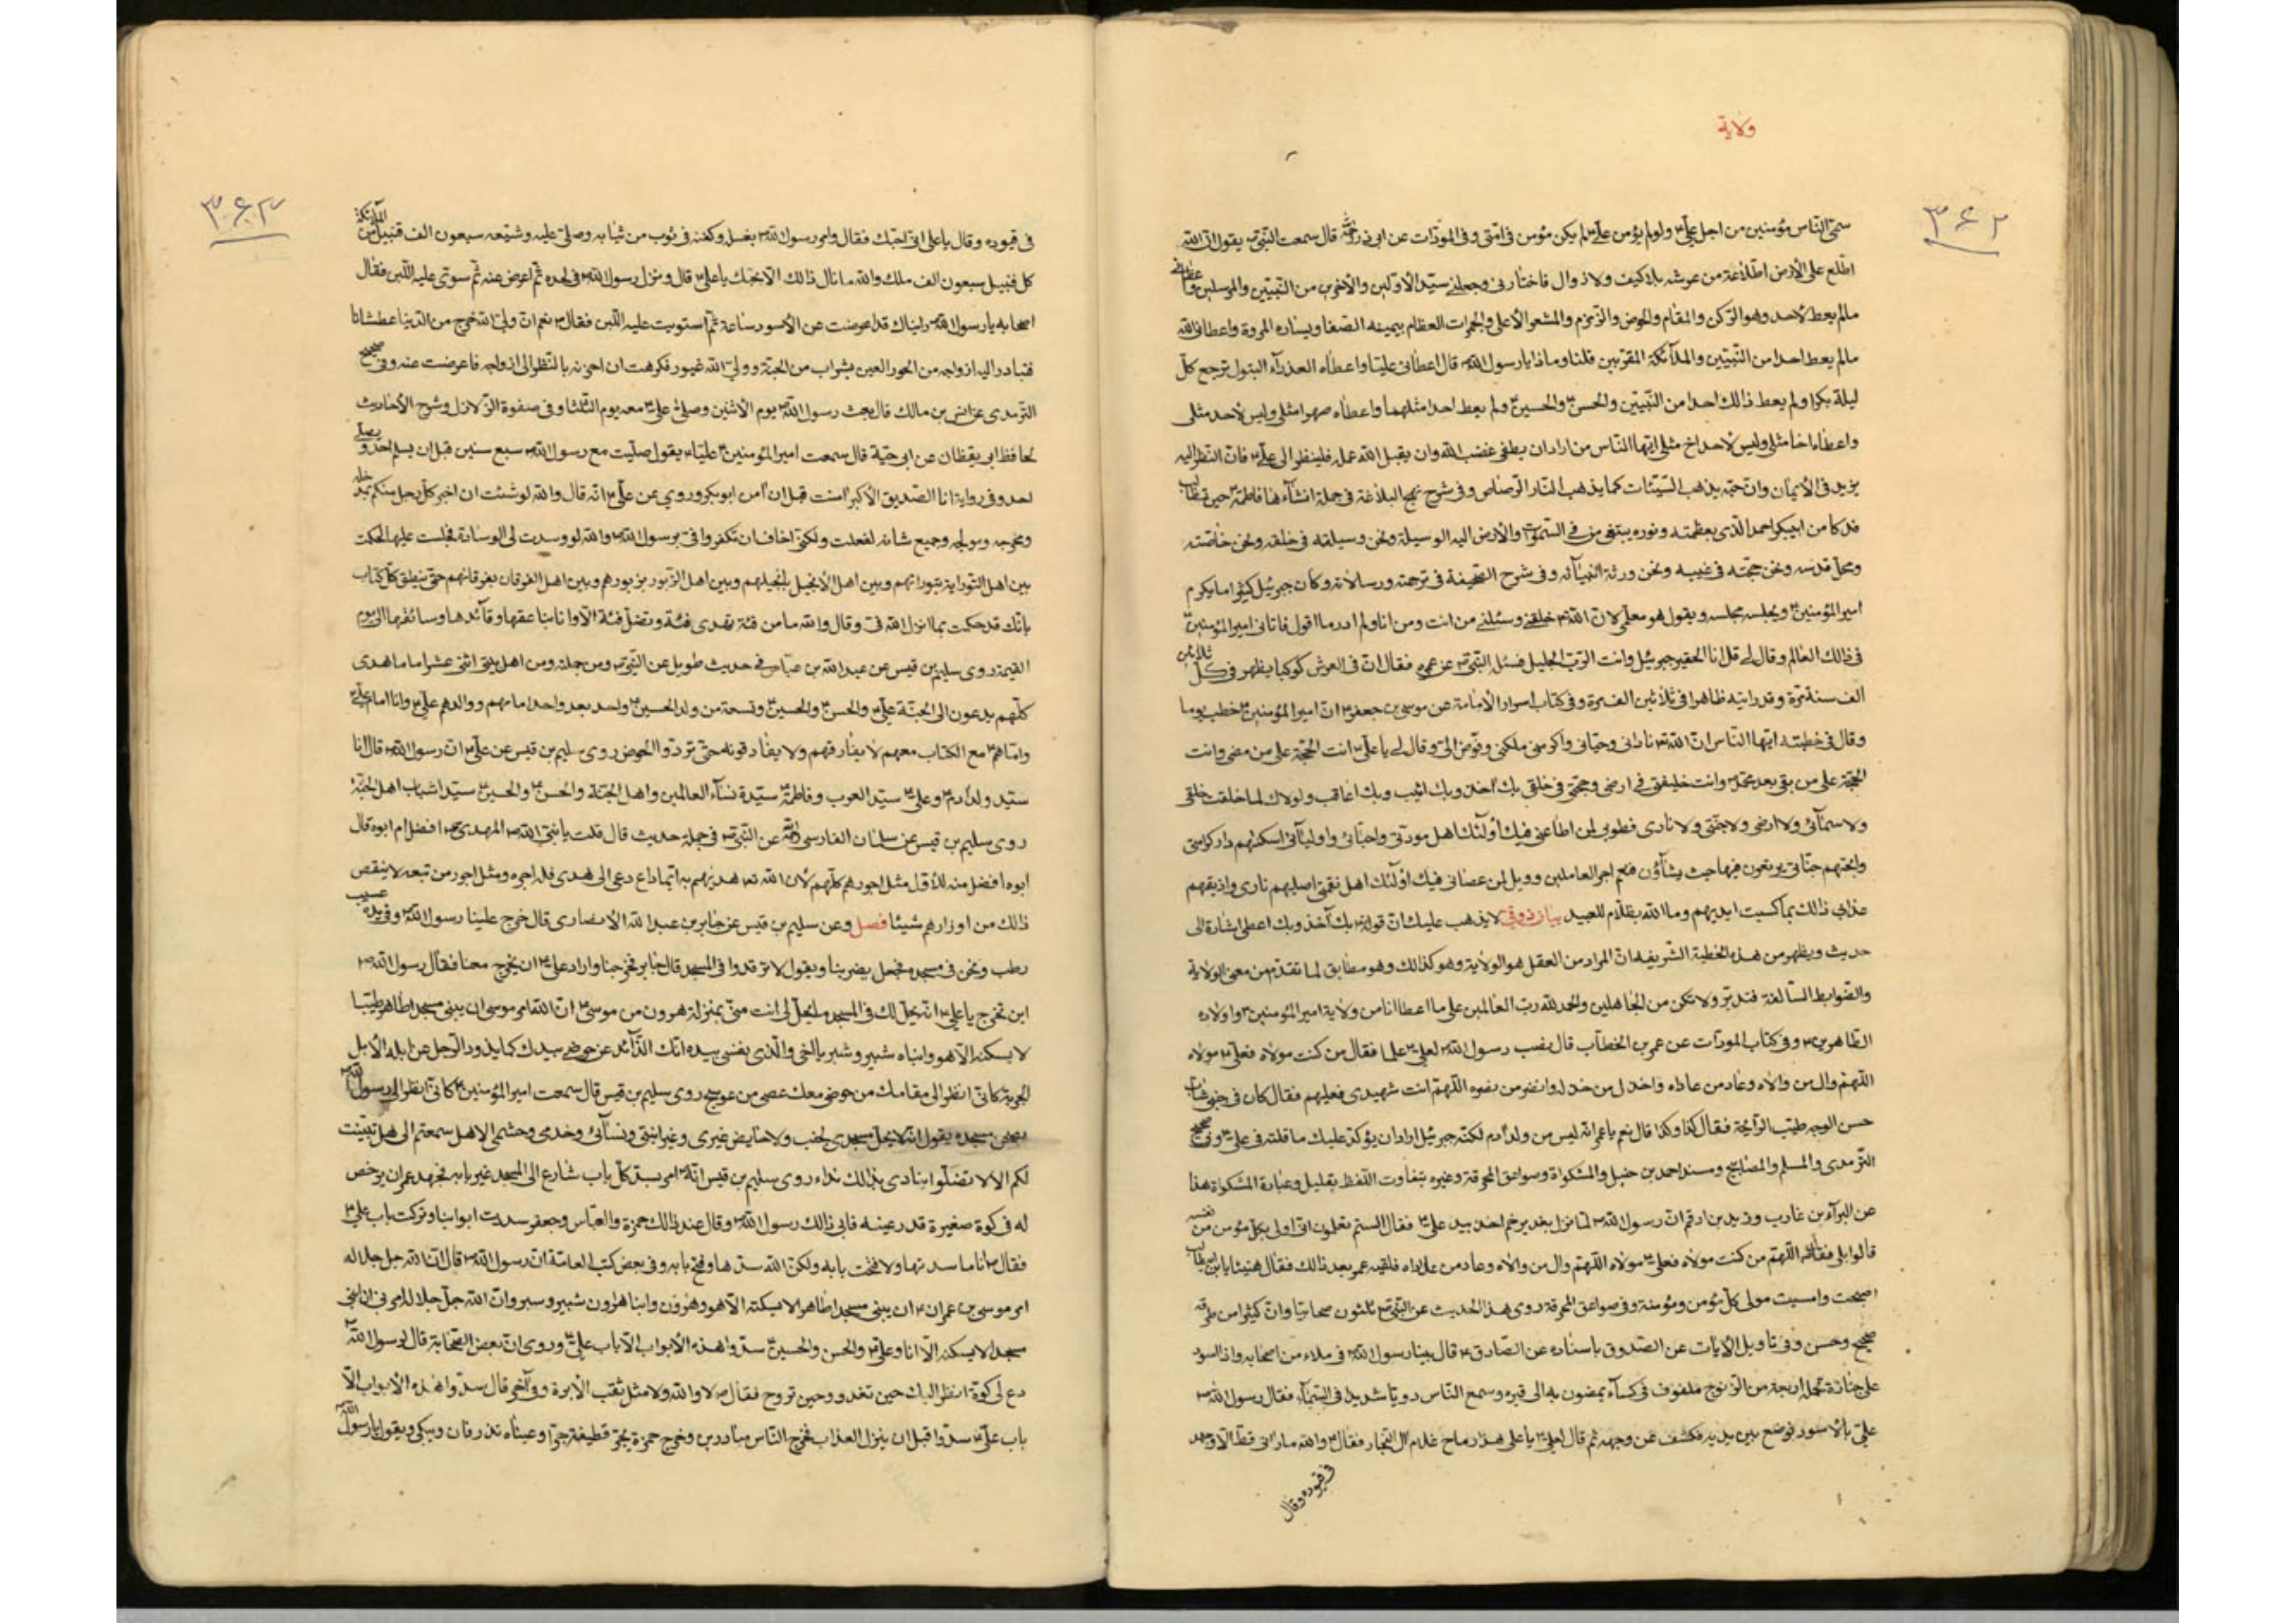 ولاية
٣٦٢
سمّى النّاس مؤمنين من اجل علىّ ولو لم يؤمن علىّ لم يكن مؤمن فى امّتى وفى المودّات عن ابى ذر قال سمعت النّبىّ يقول انّ الله
اطّلع على الأرض اطّلاعة من عرشه بلا كيف ولا زوال فاختارنى وجعلنى سيّد الأوّلين والأخرين من النّبيّين والمرسلين واعطانى
مالم يعط لأحد وهو الرّكن والمقام والحوض والزّمزم والمشعر الأعلى والجمرات العظام يمينه الصّفا ويساره المروة واعطانى الله
مالم يعط احدا من النّبيّين والملآئكة المقرّبين قلنا وماذا يا رسول الله قال اعطانى عليّا واعطاه العذرآء البتول ترجع كلّ
ليلة بكرا ولم يعط ذالك احدا من النّبيّين والحسن والحسين ولم يعط احدا مثلهما واعطاه صهرا مثلى وليس لأحد مثلى
واعطاه اخا مثلى وليس لأحد اخ مثلى ايّها النّاس من اراد ان يطفى غضب الله وان يقبل الله عمله فلينظر الى علىّ فانّ النّظر اليه
يزيد فى الأيمان وانّ حبّه يذهب السّيّئات كما يذهب النّار الرّصاص وفى شرح نهج البلاغة فى جملة انشآء هنا فاطمة حين
من ابيبكر احمد الّذى بعظمته ونوره يبتغى من فى السّموات والأرض اليه الوسيلة ونحن وسيلته فى خلقه ونحن خاصّته
ومحلّ قدسه ونحن حجّته فى غيبه ونحن ورثة انبيآئه وفى شرح الصّحيفة فى ترجمته ورسالاته وكان جبرئيل كثيرا ما يكرم
امير المؤمنين ويجلسه مجلسه ويقول هو معلّمى لانّ الله خلقنى وسئلنى من انت ومن انا ولم ادر ما اقول فاتانى امير المؤمنين
فى ذالك العالم وقال لى قل انا الحقير جبرئيل وانت الرّبّ الجليل فسئل النّبىّ عن عمره فقال انّ فى العرش كوكبا يظهر فى كلّ ثلاثين
الف سنة مرّة وقد رايته ظاهرا فى ثلاثين الف مرة وفى كتاب اسرار الأمامة عن موسى بن جعفر انّ امير المؤمنين خطب يوما
وقال فى خطبته ايّها النّاس انّ الله نادانى وحيّانى واكرمنى ملّكنى وفوّض الىّ وقال لى يا علىّ انت الحجّة على من مضى وانت
الحجّة على من بقى بعد محمّد وانت خليفتى فى ارضى وحجّتى فى خلقى بك اخذ وبك اثيب وبك اعاقب ولولاك لما خلقت خلقى
ولا سمآئى ولا ارضى ولا جنّتى ولا نارى فطوبى لمن اطاعنى فيك اولئك اهل مودّتى واحبّائى واوليآئى اسكنهم دار كرامتى
وابحتهم جنّاتى يرتعون فيها حيث يشآؤن فنعم اجر العاملين وويل لمن عصانى فيك اولئك اهل نقمتى اصليهم نارى واذيقهم
عذابى ذالك بما كسبت ايديهم وما الله بظلّام للعبيد بيان ذوقى لا يذهب عليك انّ قوله بك آخذ وبك اعطى اشارة الى
حديث ويظهر من هذه الخطبة الشّريفة انّ المراد من العقل هو الولاية وهو كذالك وهو مطابق لما تقدّم من معنى الولاية
والضّوابط السّالفة فتدبّر ولا تكن من الجاهلين والحمد لله ربّ العالمين على ما اعطانا من ولاية امير المؤمنين واولاده
الطّاهرين وفى كتاب المودّات عن عمر بن الخطّاب قال نصب رسول الله لعلىّ علما فقال من كنت مولاه فعلىّ مولاه
اللّهمّ وال من والاه وعاد من عاداه واخذل من خذله وانصر من نصره اللّهمّ انت شهيدى فعليهم فقال كان فى جنبى شابّ
حسن الوجه طيّب الرّائحة فقال كذا وكذا قال نعم يا عمر انّه ليس من ولد آدم لكنّه جبرئيل اراد ان يؤكّد عليك ما قلته فى علىّ وفى صحيح
التّرمدى والمسلم والمصابيح ومسند احمد بن حنبل والمشكواة وصواعق المحرقة وغيره بتفاوت اللّفظ بقليل وعبارة المشكواة هذا
عن البرآء بن عازب وزيد بن ارقم انّ رسول الله لمّا نزل بغدير خم اخذ بيد علىّ فقال الستم تعلمون انّى اولى بكلّ مؤمن من نفسه
قالوا بلى فقال اللّهمّ من كنت مولاه فعلىّ مولاه اللّهمّ وال من والاه وعاد من عاداه فلقيه عمر بعد ذالك فقال هنيئا يا ابن ابى طالب
اصبحت وامسيت مولى كلّ مؤمن ومؤمنة وفى صواعق المحرقة روى هذا الحديث عن النّبىّ ثلثون صحابيّا وانّ كثيرا من طرقه
صحيح وحسن وفى تاويل الآيات عن الصّدوق باسناده عن الصّادق قال بينا رسول الله فى ملاء من اصحابه واذا اسود
على جنازة تحمل اربعة من الزّنوج ملفوف فى كسآء يمضون به الى قبره وسمع النّاس دويّا شديدا فى السّمآء فقال رسول الله
علىّ بالأسود فوضع بين يديه فكشف عن وجهه ثمّ قال لعلىّ يا على هذا رماح غلام آل النجّار فقال والله ما رانى قطّ الّا وجهد
فى قيوده وقال
٣٦٣
فى قيوده وقال يا على انّى لحبّك فقال وامر رسول الله بغسله وكفنه فى ثوب من ثيابه وصلّى عليه وشيّعه سبعون الف قبيل من الملآئكة
كلّ قبيل سبعون الف ملك والله ما نال ذالك الّا بحبّك يا علىّ قال ونزل رسول الله فى لحده ثمّ اعرض عنه ثمّ سوّى عليه اللّبن فقال
اصحابه يا رسول الله رايناك قد اعرضت عن الأسود ساعة ثمّ استويت عليه اللّبن فقال نعم انّ ولىّ الله خرج من الدّنيا عطشانا
فتبادر اليه ازواجه من الحور العين بشراب من الجنّة وولىّ الله غيور فكرهت ان احزنه بالنّظر الى ازواجه فاعرضت عنه وفى صحيح
التّرمدى عن انس بن مالك قال بعث رسول الله يوم الأثنين وصلّى علىّ معه يوم الثّلثا وفى صفوة الزّلازل وشرح الأحاديث
لحافظ ابى يقظان عن ابى حيّة قال سمعت امير المؤمنين عليّا يقول صلّيت مع رسول الله سبع سنين قبل ان يسلم احد ويصلّى
احد وفى رواية انا الصّديق الأكبر امنت قبل ان آمن ابو بكر وروى عن علىّ انّه قال والله لو شئت ان اخبر كلّ رجل منكم
ومخرجه ومولجه وجميع شانه لفعلت ولكنّى اخاف ان تكفروا فىّ برسول الله والله لو وسدت لى الوسادة فجلست عليها لحكمت
بين اهل التّوراية بتوراتهم وبين اهل الأنجيل بانجيلهم وبين اهل الزّبور بزبورهم وبين اهل الفرقان بفرقانهم حتّى ينطق كلّ كتاب
بانّك قد حكمت بما انزل الله فىّ وقال والله ما من فئة تهدى فئة وتضلّ فئة الّا وانا ناعقها وقآئدها وسائقها الى يوم
القيمة روى سليم بن قيس عن عبد الله بن عبّاس فى حديث طويل عن النّبىّ ومن جملته ومن اهل بيتى اثنى عشر اماما هدى
كلّهم يدعون الى الجنّة علىّ والحسن والحسين وتسعة من ولد الحسين واحد بعد واحد امامهم ووالدهم علىّ وانا امام علىّ
وامامهم مع الكتاب معهم لا يفارقهم ولا يفارقونه حتّى تردّوا الحوض روى سليم بن قيس عن علىّ انّ رسول الله قال انا
سيّد ولد آدم وعلىّ سيّد العرب وفاطمة سيّدة نسآء العالمين واهل الجنّة والحسن والحسين سيّدا شباب اهل الجنّة
روى سليم بن قيس عن سلمان الفارسى عن النّبىّ فى جملة حديث قال قلت يا نبىّ الله المهدى افضل ام ابوه قال
ابوه افضل منه للأوّل مثل اجورهم كلّهم لأنّ الله هديهم به ايّما داع دعى الى هدى فله اجره ومثل اجور من تبعه لا ينقص
ذالك من اوزارهم شيئا فصل وعن سليم بن قيس عن جابر بن عبد الله الأنصارى قال خرج علينا رسول الله وفى يده عسيب
رطب ونحن فى مسجده فجعل يضربنا ويقول لا ترقدوا فى المسجد قال جابر فخرجنا واراد علىّ ان يخرج معنا فقال رسول الله
اين تخرج يا علىّ انّه يحلّ لك فى المسجد ما يحلّ لى انت منّى بمنزلة هرون من موسى انّ الله امر موسى ان يبنى مسجدا طاهرا طيّبا
لا يسكنه الّا هو وابناه شبير وشبر والّذى نفسى بيده انّك الذّائد عن حوضى بيدك كما يذود الرّجل عن ابله الأبل
الجربة كانّى انظر الى مقامك من حوضى معك عصى من عوسج روى سليم بن قيس قال سمعت امير المؤمنين كانّى انظر الى رسول الله
بصحن مسجده يقول انّه لا يحلّ مسجدى لجنب ولا حايض غيرى وغير ابنتى ونسآئى وخدمى وحشمى الا هل سمعتم الى هل تبيّنت
لكم الا لا تضلّوا ينادى بذالك نداء روى سليم بن قيس انّه امر بسدّ كلّ باب شارع الى المسجد غير بابه فجهد عمر ان يرخص
له فى كوة صغيرة قدر عينه فابى ذالك رسول الله وقال عند ذالك حمزة والعبّاس وجعفر سددت ابوابنا وتركت باب علىّ
فقال ما انا ما سددتها ولا فتحت بابه ولكنّ الله سدّها وفتح بابه وفى بعض كتب العامّة انّ رسول الله قال انّ الله جل جلاله
امر موسى بن عمران ان يبنى مسجدا طاهرا لا يسكنه الّا هو وهرون وابنا هارون شبير وشبر وانّ الله جلّ جلاله امرنى ان ابنى
مسجدا لا يسكنه الّا انا وعلىّ والحسن والحسين سدّوا هذه الأبواب الّا باب علىّ وروى انّ بعض الصّحابة قال لرسول الله
دع لى كوة انظر اليك حين تغدو وحين تروح فقال لا والله ولا مثل ثقب الأبرة وفى آخر قال سدّوا هذه الأبواب الّا
باب علىّ سدّوا قبل ان ينزل العذاب فخرج النّاس مبادرين وخرج حمزة يجرّ قطيفته وعيناه تذرفان ويبكى ويقول يا رسول الله